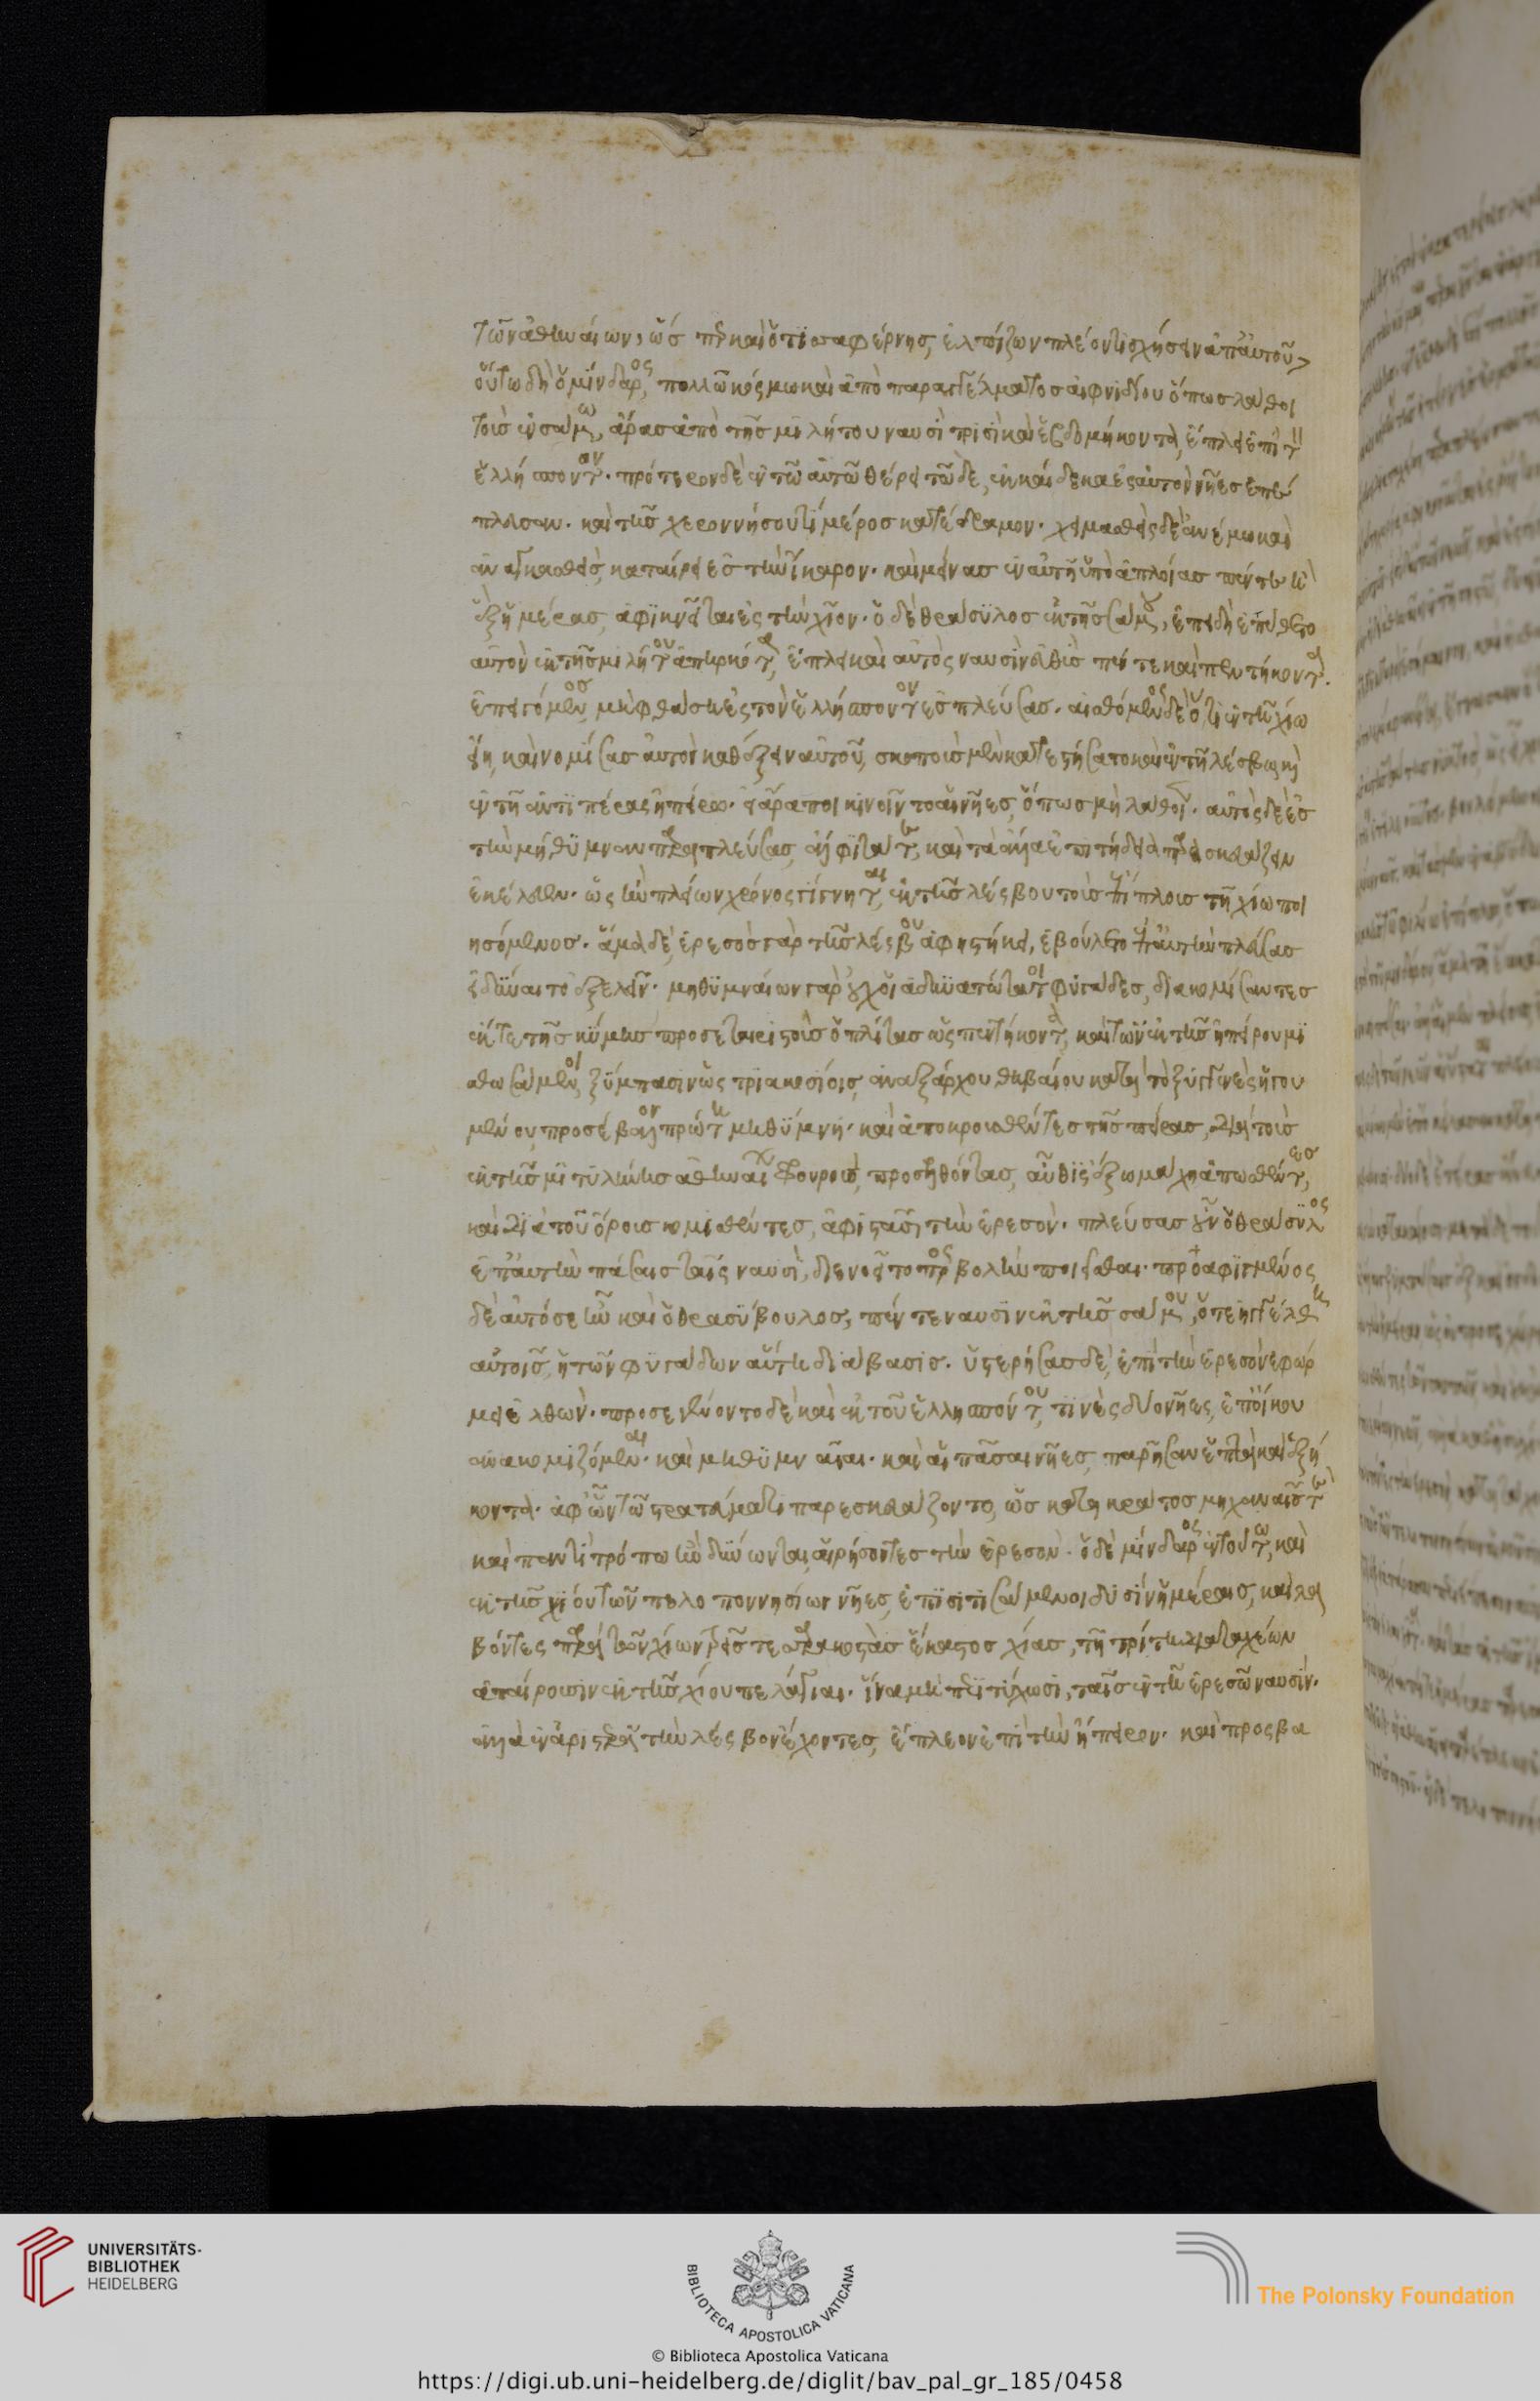 τῶν ἀθηναίων, ὥσπερ καὶ ὁ τισσαφέρνης, ἐλπίζων πλέον τι σχήσειν ἀπ' αὐτοῦ,
οὕτω δὴ ὁ μίνδαρος, πολλῶ κόσμω καὶ ἀπὸ παραγγέλματος αἰφνιδίου ὅπως λάθοι
τοὺς ἐν σάμω, ἄρας ἀπὸ τῆς μιλήτου ναυσὶ τρισὶ καὶ ἑβδομήκοντα, ἔπλει ἐπὶ τ
ἑλλήσποντον. πρότερον δὲ ἐν τῶ αὐτῶ θέρει τῶδε, ἑκκαίδεκα ἐς αὐτὸν νῆες ἐσέ
πλευσαν. καὶ τῆς χερρονήσου τι μέρος κατέδραμον. χειμασθεὶς δὲ ἀνέμω καὶ
ἀναγκασθεὶς, καταίρει ἐς τὴν ἴκαρον. καὶ μείνας ἐν αὐτῆ ὑπὸ ἀπλοίας πέντε ἢ
ἓξ ἡμέρας, ἀφικνεῖται ἐς τὴν χίον. ὁ δὲ θράσυλος ἐκ τῆς σάμου, ἐπειδὴ ἐπύθετο
αὐτὸν ἐκ τῆς μιλήτου ἀπηρκότα, ἔπλει καὶ αὐτὸς ναυσὶν εὐθὺς πέντε καὶ πεντήκοντα.
ἐπειγόμενος μὴ φθάση ἐς τὸν ἑλλήσποντον ἐσπλεύσας. αἰσθόμενος δὲ ὅτι ἐν τῆ χίω
εἴη, καὶ νομίσας αὐτὸν καθέξειν αὐτοῦ, σκοποὺς μὲν κατεστήσατο καὶ ἐν τῆ λέσβω καὶ
ἐν τῆ ἀντιπέρας ἠπείρω. εἰ ἄρα ποι κινοῖντο αἱ νῆες, ὅπως μὴ λάθοιεν. αὐτὸς δὲ ἐς
τὴν μήθυμναν παραπλεύσας, ἄλφιτά τε, καὶ τὰ ἄλλα ἐπιτήδεια παρασκευάζειν
ἐκέλευεν. ὡς ἢν πλείων χρόνος γίγνηται, ἐκ τῆς λέσβου τοὺς ἐπίπλους τῆ χίω ποι
ησόμενος. ἅμα δὲ, ἔρεσος γὰρ τῆς λέσβου ἀφηστήκει, ἐβούλετο ἐπ' αὐτὴν πλεύσας
εἰ δύναιτο ἐξελεῖν. μηθυμναίων γὰρ οὐχ οἱ ἀδυνατώτατοι φυγάδες, διακομίσαντες
ἔκ τε τῆς κύμης προσεταιριστοὺς ὁπλίτας ὡς πεντήκοντα, καὶ τῶν ἐκ τῆς ἠπείρου μι
σθωσάμενοι, ξύμπασιν ὡς τριακοσίοις, ἀναξάρχου θηβαίου κατὰ τὸ ξυγγενὲς ἡγου
μένου, προσέβαλον πρώτη μηθύμνη. καὶ ἀποκρουσθέντες τῆς πείρας, διὰ τοὺς
ἐκ τῆς μιτυλήνης ἀθηναίων φρουροὺς, προσελθόντας, αὖθις ἔξω μάχη ἀπωσθέντες,
καὶ διὰ τοῦ ὄρους κομισθέντες, ἀφιστᾶσι τὴν ἔρεσον. πλεύσας οὖν ὁ θράσυλος
ἐπ' αὐτὴν πάσαις ταῖς ναυσὶ, διενοεῖτο προσβολὴν ποιεῖσθαι. προαφιγμένος
δὲ αὐτόσε ἦν καὶ ὁ θρασύβουλος, πέντε ναυσὶν ἐκ τῆς σάμου, ὅτε ἠγγέλθη
αὐτοῖς, ἡ τῶν φυγάδων αὕτη διάβασις. ὑστερήσας δὲ, ἐπὶ τὴν ἔρεσον ἐφώρ
μει ἐλθών. προσεγένοντο δὲ καὶ ἐκ τοῦ ἑλλησπόντου, τινὲς δύο νῆες, ἐπ' οἴκου
ἀνακομιζόμεναι. καὶ μηθυμναῖαι. καὶ αἱ πᾶσαι νῆες, παρῆσαν ἑπτὰ καὶ ἑξή
κοντα. ἀφ' ὧν τῶ στρατεύματι παρεσκευάζοντο, ὡς κατὰ κράτος μηχαναῖς τε
καὶ παντὶ τρόπω ἢν δύνωνται, αἱρήσοντες τὴν ἔρεσον. ὁ δὲ μίνδαρος ἐν τούτω, καὶ
ἐκ τῆς χίου τῶν πελοποννησίων νῆες, ἐπισιτισάμενοι δυσὶν ἡμέραις, καὶ λα
βόντες παρὰ τῶν χίων τρεῖς τεσσαρακοστὰς ἕκαστος χίας, τῆ τρίτη διὰ ταχέων
ἀπαίρουσιν ἐκ τῆς χίου πελάγιαι. ἵνα μὴ περιτύχωσι, ταῖς ἐν τῆ ἐρέσω ναυσίν.
ἀλλὰ ἐν ἀριστερᾶ τὴν λέσβον ἔχοντες, ἔπλεον ἐπὶ τὴν ἤπειρον. καὶ προσβα
UNIVERSITÄTS-
BIBLIOTHEK
HEIDELBERG
BIBLIOTECA APOSTOLICA VATICANA
The Polonsky Foundation
© Biblioteca Apostolica Vaticana
https://digi.ub.uni-heidelberg.de/diglit/bav_pal_gr_185/0458